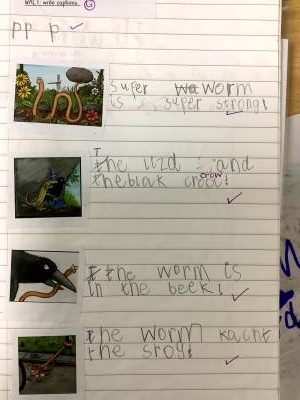 WALT: write captions.
G
pp p
Super worm
is super strong!
T
the lizd and
the black crow!
crow
the worm is
in the beek!
the worm kacht
the sroy!